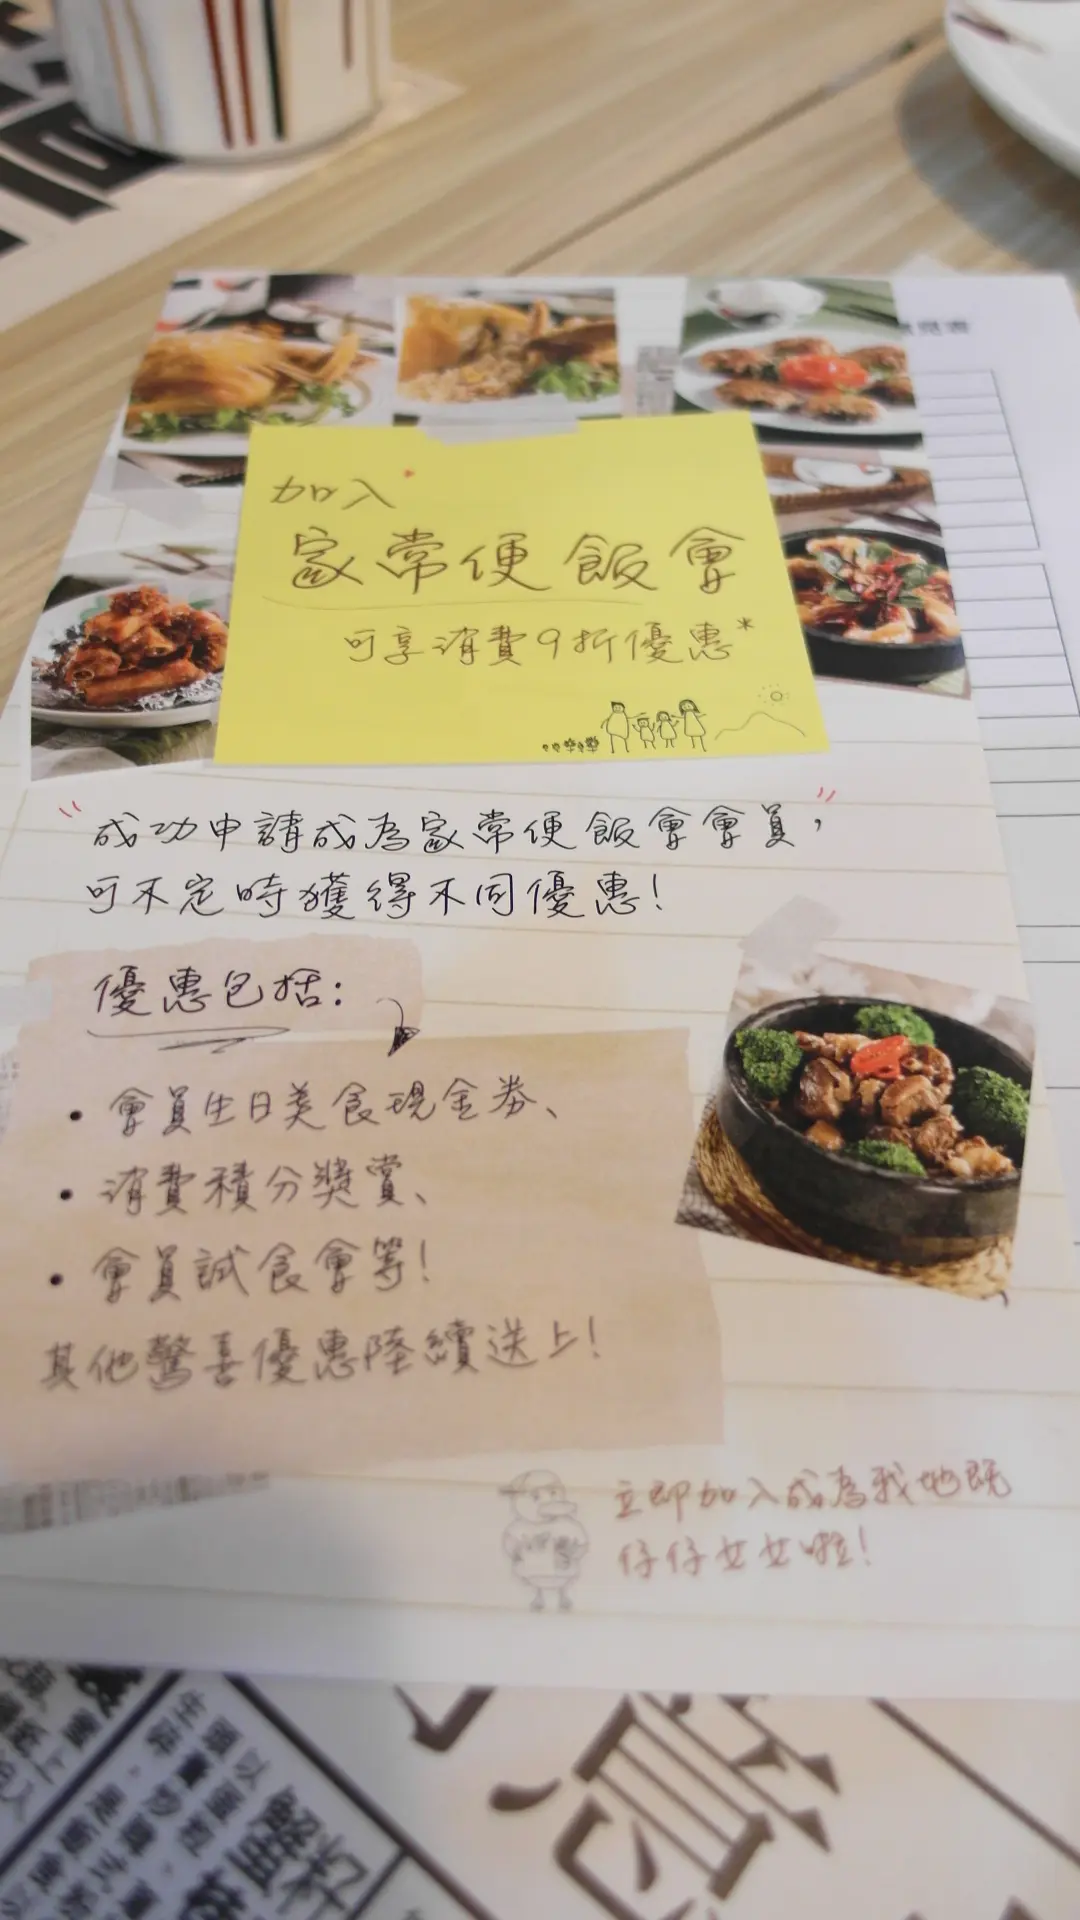 加入
家常便飯會
可享消費9折優惠*
"成功申請成為家常便飯會會員,"
可不定時獲得不同優惠!
優惠包括:
• 會員生日美食現金券、
• 消費積分獎賞、
• 會員試食會等!
其他驚喜優惠陸續送上!
立即加入成為我地既
仔仔女女啦!